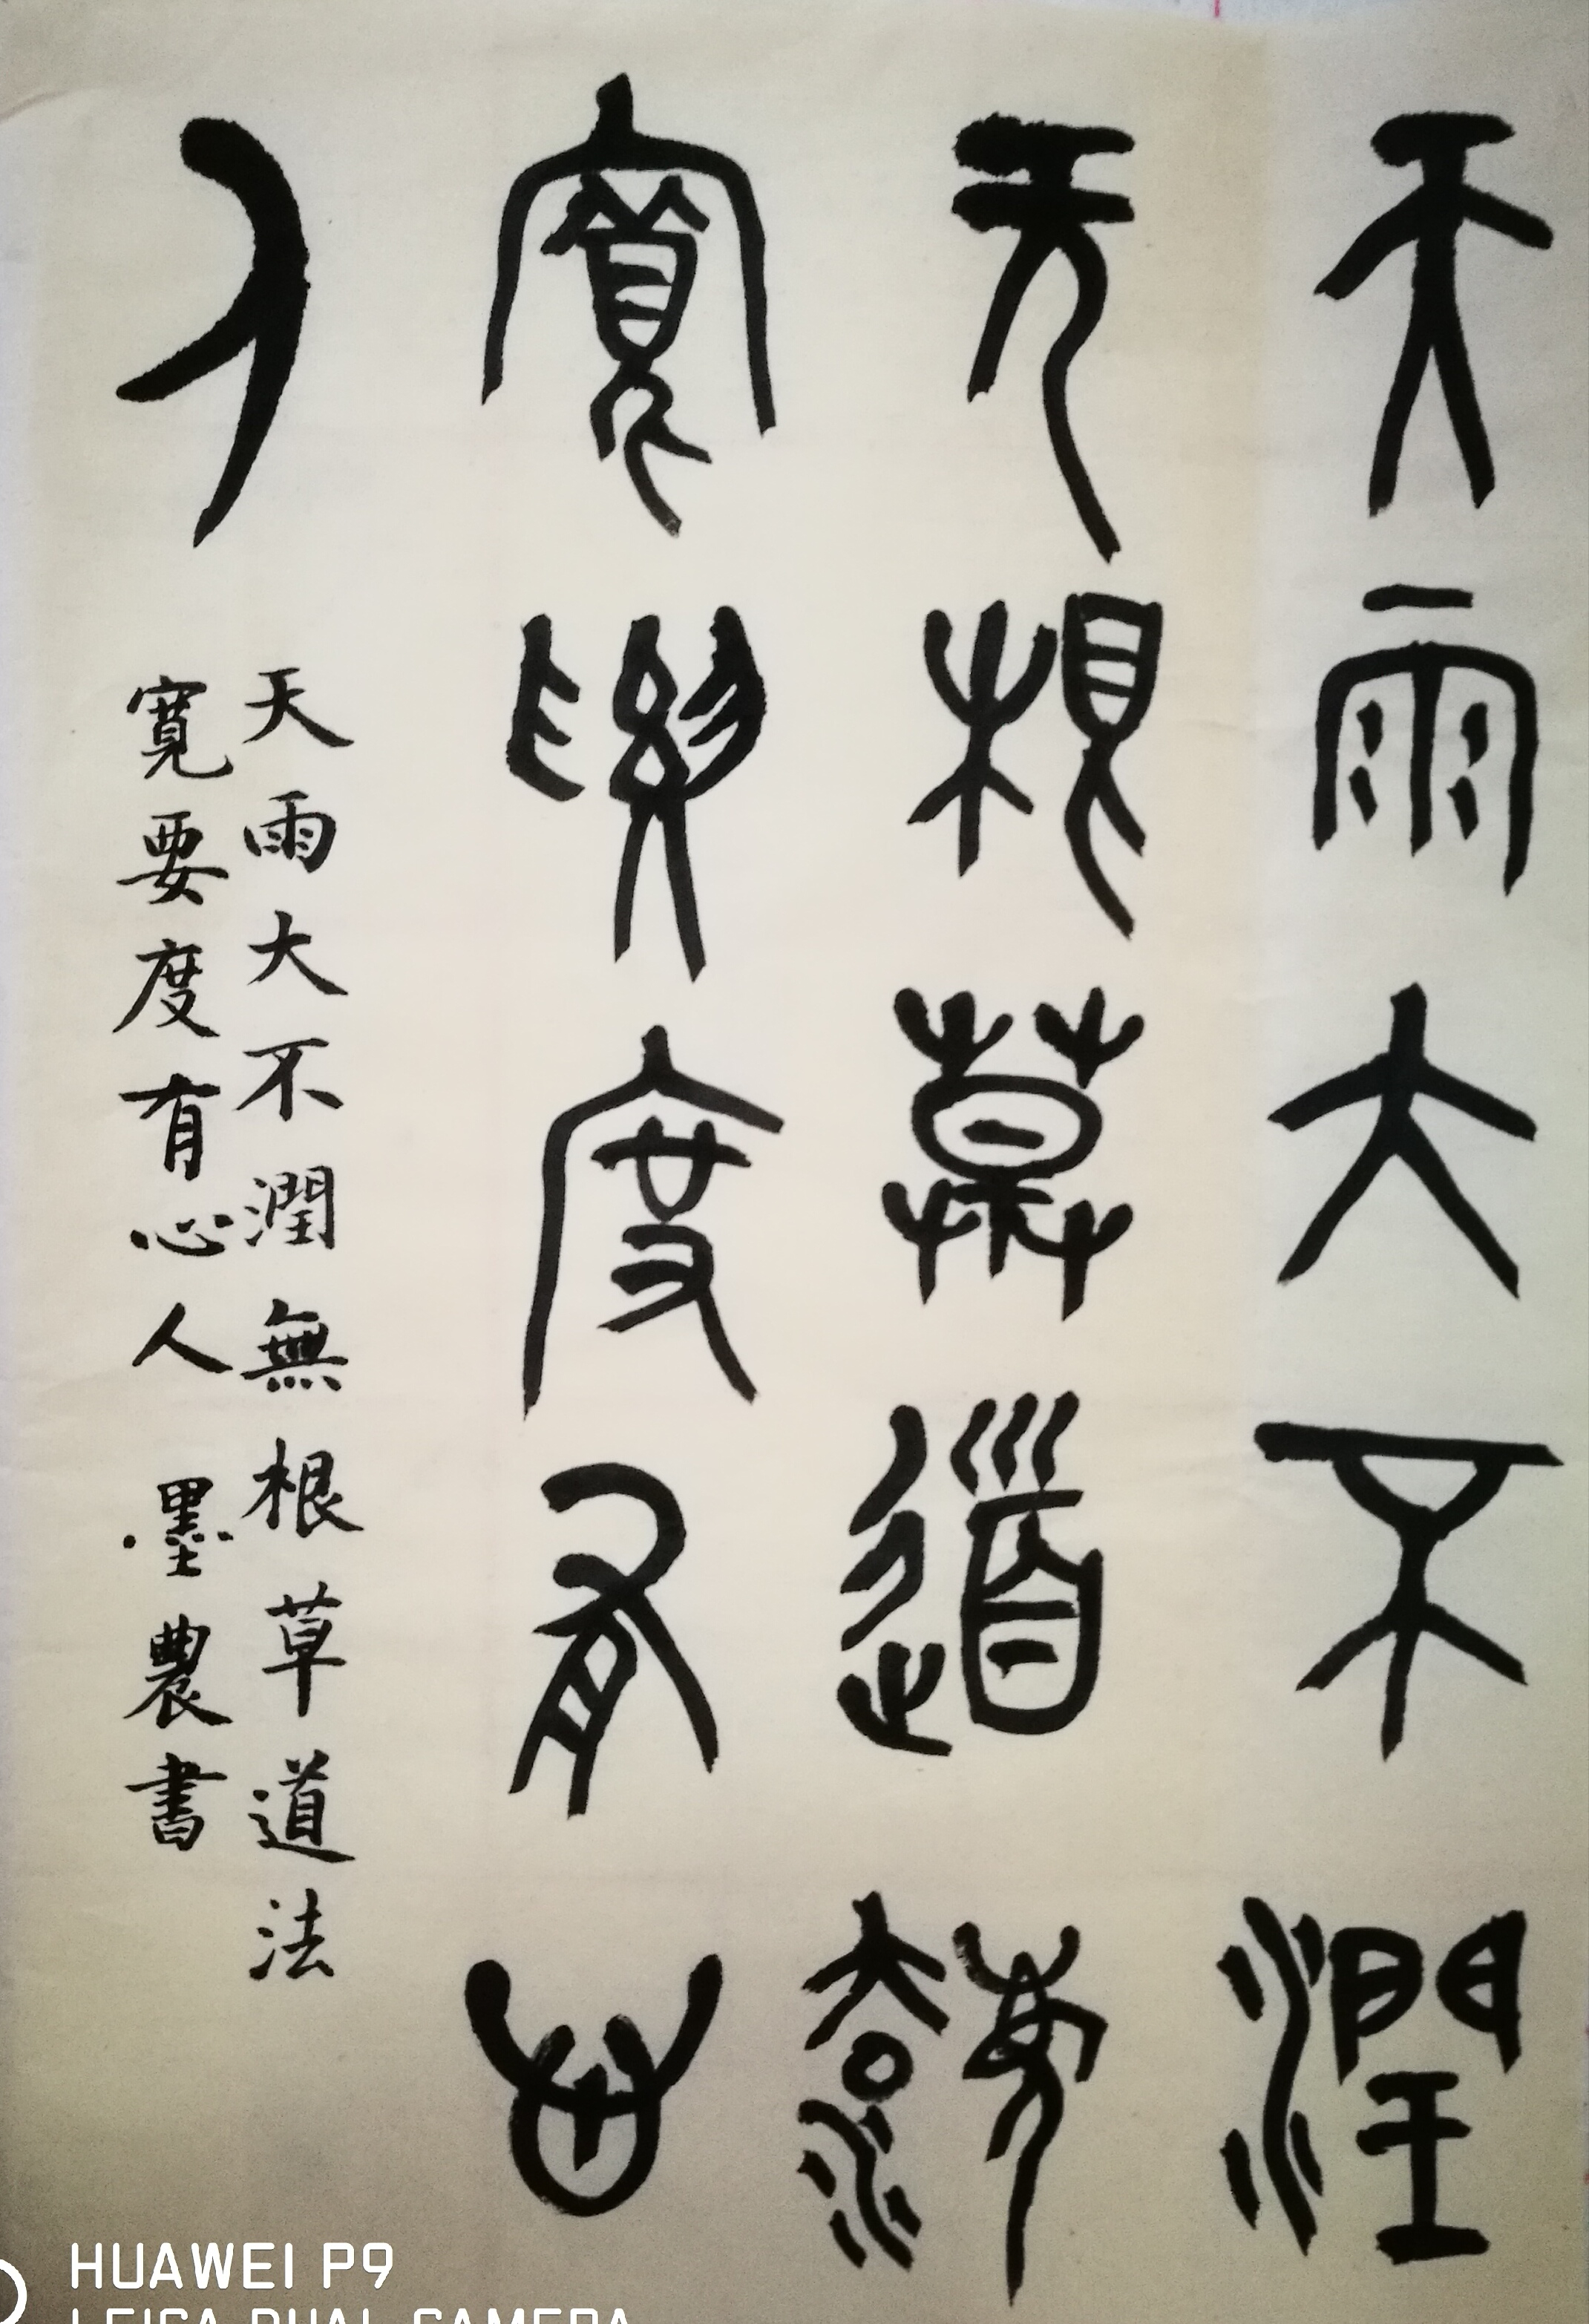 天雨大不潤
无根草道法
寬要度有心
人
天雨大不潤無根草道法
寬要度有心人 墨農書
HUAWEI P9
LEICA DUAL CAMERA